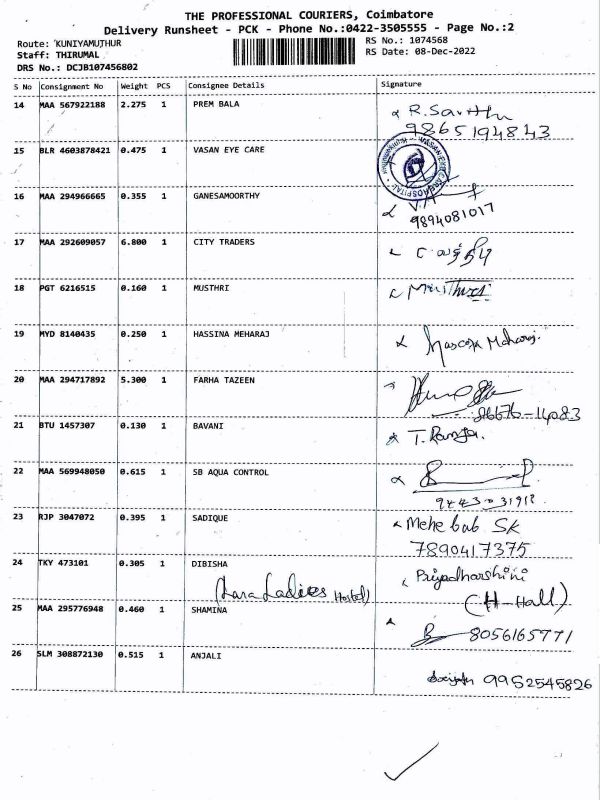 THE PROFESSIONAL COURIERS, Coimbatore
Delivery Runsheet - PCK - Phone No.:0422-3505555 - Page No.:2
Route: KUNIYAMUTHUR
RS No.: 1074568
Staff: THIRUMAL
RS Date: 08-Dec-2022
DRS No.: DCJB107456802
S No Consignment No Weight PCS Consignee Details Signature
14 MAA 567922188 2.275 1 PREM BALA
9865194843
15 BLR 4603878421 0.475 1 VASAN EYE CARE
VASAN EYE CARE HOSPITAL
16 MAA 294966665 0.355 1 GANESAMOORTHY
9894081017
17 MAA 292609057 6.800 1 CITY TRADERS
18 PGT 6216515 0.160 1 MUSTHRI
19 MYD 8140435 0.250 1 HASSINA MEHARAJ
20 MAA 294717892 5.300 1 FARHA TAZEEN
86676-14083
21 BTU 1457307 0.130 1 BAVANI
22 MAA 569948050 0.615 1 SB AQUA CONTROL
23 RJP 3047072 0.395 1 SADIQUE Mehebab SK
7890417375
24 TKY 473101 0.305 1 DIBISHA Priyadharshini
(Lara Ladies Hostel) (H-Hall)
25 MAA 295776948 0.460 1 SHAMINA
8056165771
26 SLM 308872130 0.515 1 ANJALI
9952545826